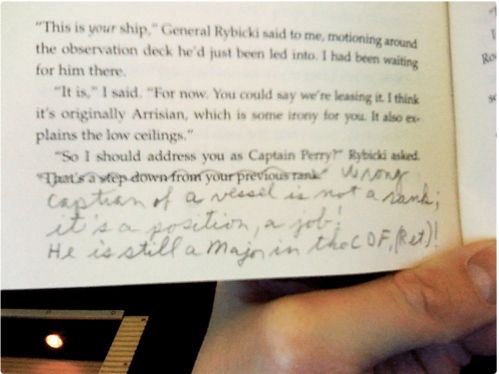 "This is your ship," General Rybicki said to me, motioning around
the observation deck he'd just been led into. I had been waiting
for him there.
"It is," I said. "For now. You could say we're leasing it. I think
it's originally Arrisian, which is some irony for you. It also ex-
plains the low ceilings."
"So I should address you as Captain Perry?" Rybicki asked.
"That's a step down from your previous rank." Wrong
Captian of a vessel is not a rank;
it's a position, a job!
He is still a Major in the CDF, (Ret)!